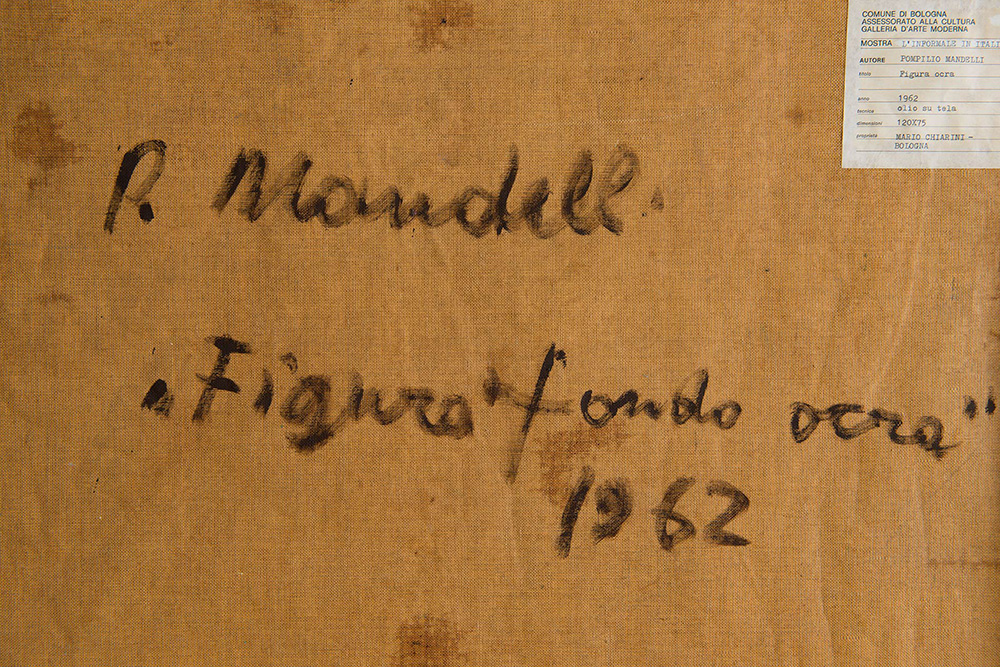 COMUNE DI BOLOGNA
ASSESSORATO ALLA CULTURA
GALLERIA D'ARTE MODERNA
MOSTRA L'INFORMALE IN ITALI
AUTORE POMPILIO MANDELLI
titolo Figura ocra
anno 1962
tecnica olio su tela
dimensioni 120X75
proprietà MARIO CHIARINI -
BOLOGNA
P. Mandelli
"Figura" fondo ocra"
1962